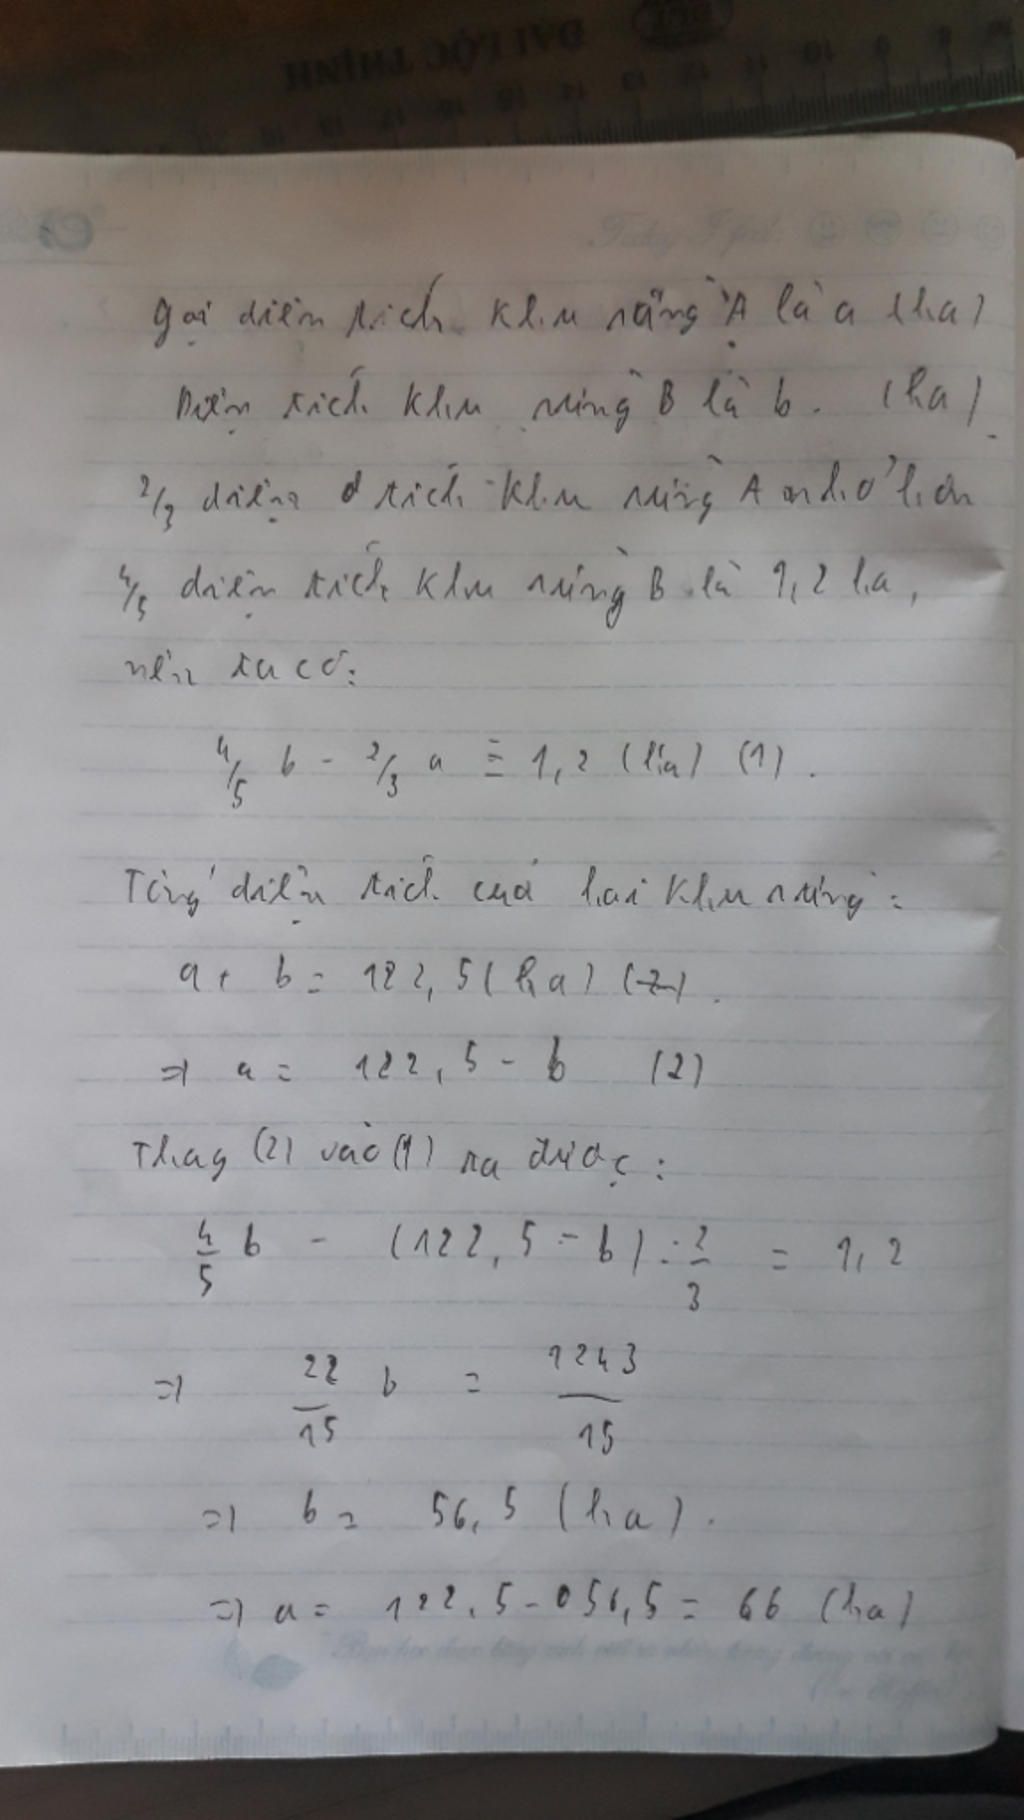 ĐẠI LỘC THỊNH
8 9 10 11 12 13 14 15 16 17 18 19 20
Today I feel:
Gọi diện tích khu rừng A là a (ha)
Diện tích khu rừng B là b. (ha)
2/3 diện tích khu rừng A nhỏ hơn
4/5 diện tích khu rừng B là 1,2 ha,
nên ta có:
4/5 b - 2/3 a = 1,2 (ha) (1).
Tổng diện tích của hai khu rừng:
a + b = 122,5 (ha) (2).
=> a = 122,5 - b (2)
Thay (2) vào (1) ta được:
4/5 b - (122,5 - b) . 2/3 = 1,2
=> 22/15 b = 1243/15
=> b = 56,5 (ha).
=> a = 122,5 - 56,5 = 66 (ha)